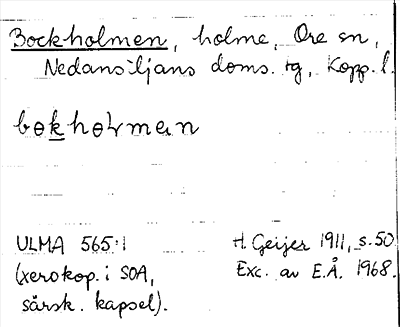 Bockholmen, holme, Ore sn,
Nedansiljans doms. tg, Kopp. l.
bokholmen
ULMA 565:1
(xerokop. i SOA,
särsk. kapsel).
H. Geijer 1911, s. 50
Exc. av E.Å. 1968.